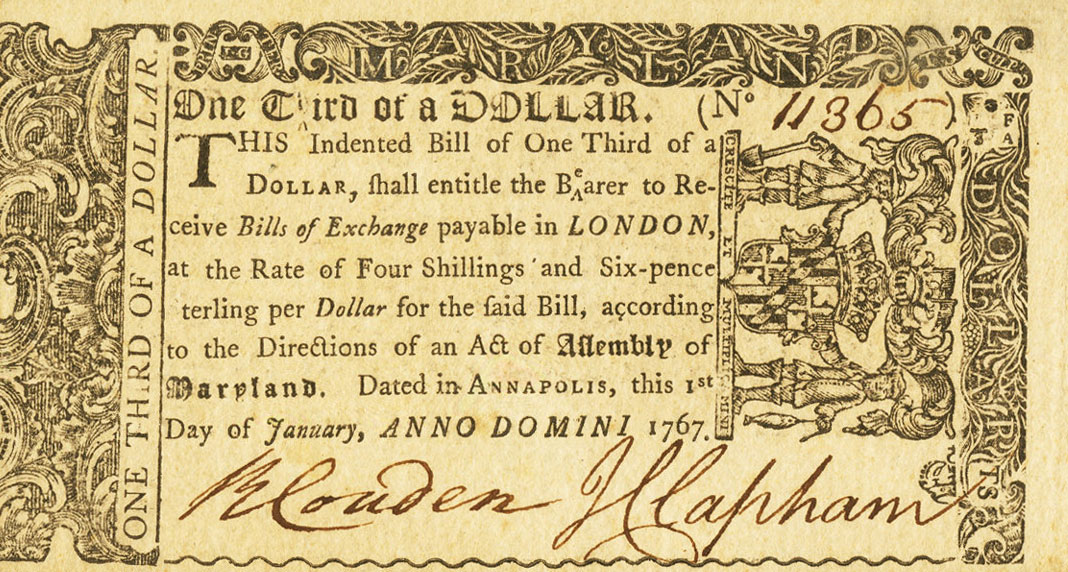 MARYLAND
One Third of a DOLLAR. (Nº 11365)
THIS Indented Bill of One Third of a
DOLLAR, ſhall entitle the Bᴇarer to Re-
ceive Bills of Exchange payable in LONDON,
at the Rate of Four Shillings and Six-pence
terling per Dollar for the ſaid Bill, according
to the Directions of an Act of Aſſembly of
Maryland. Dated in ANNAPOLIS, this 1st
Day of January, ANNO DOMINI 1767.
R Couden J Clapham
ONE THIRD OF A DOLLAR
CRESCITE ET